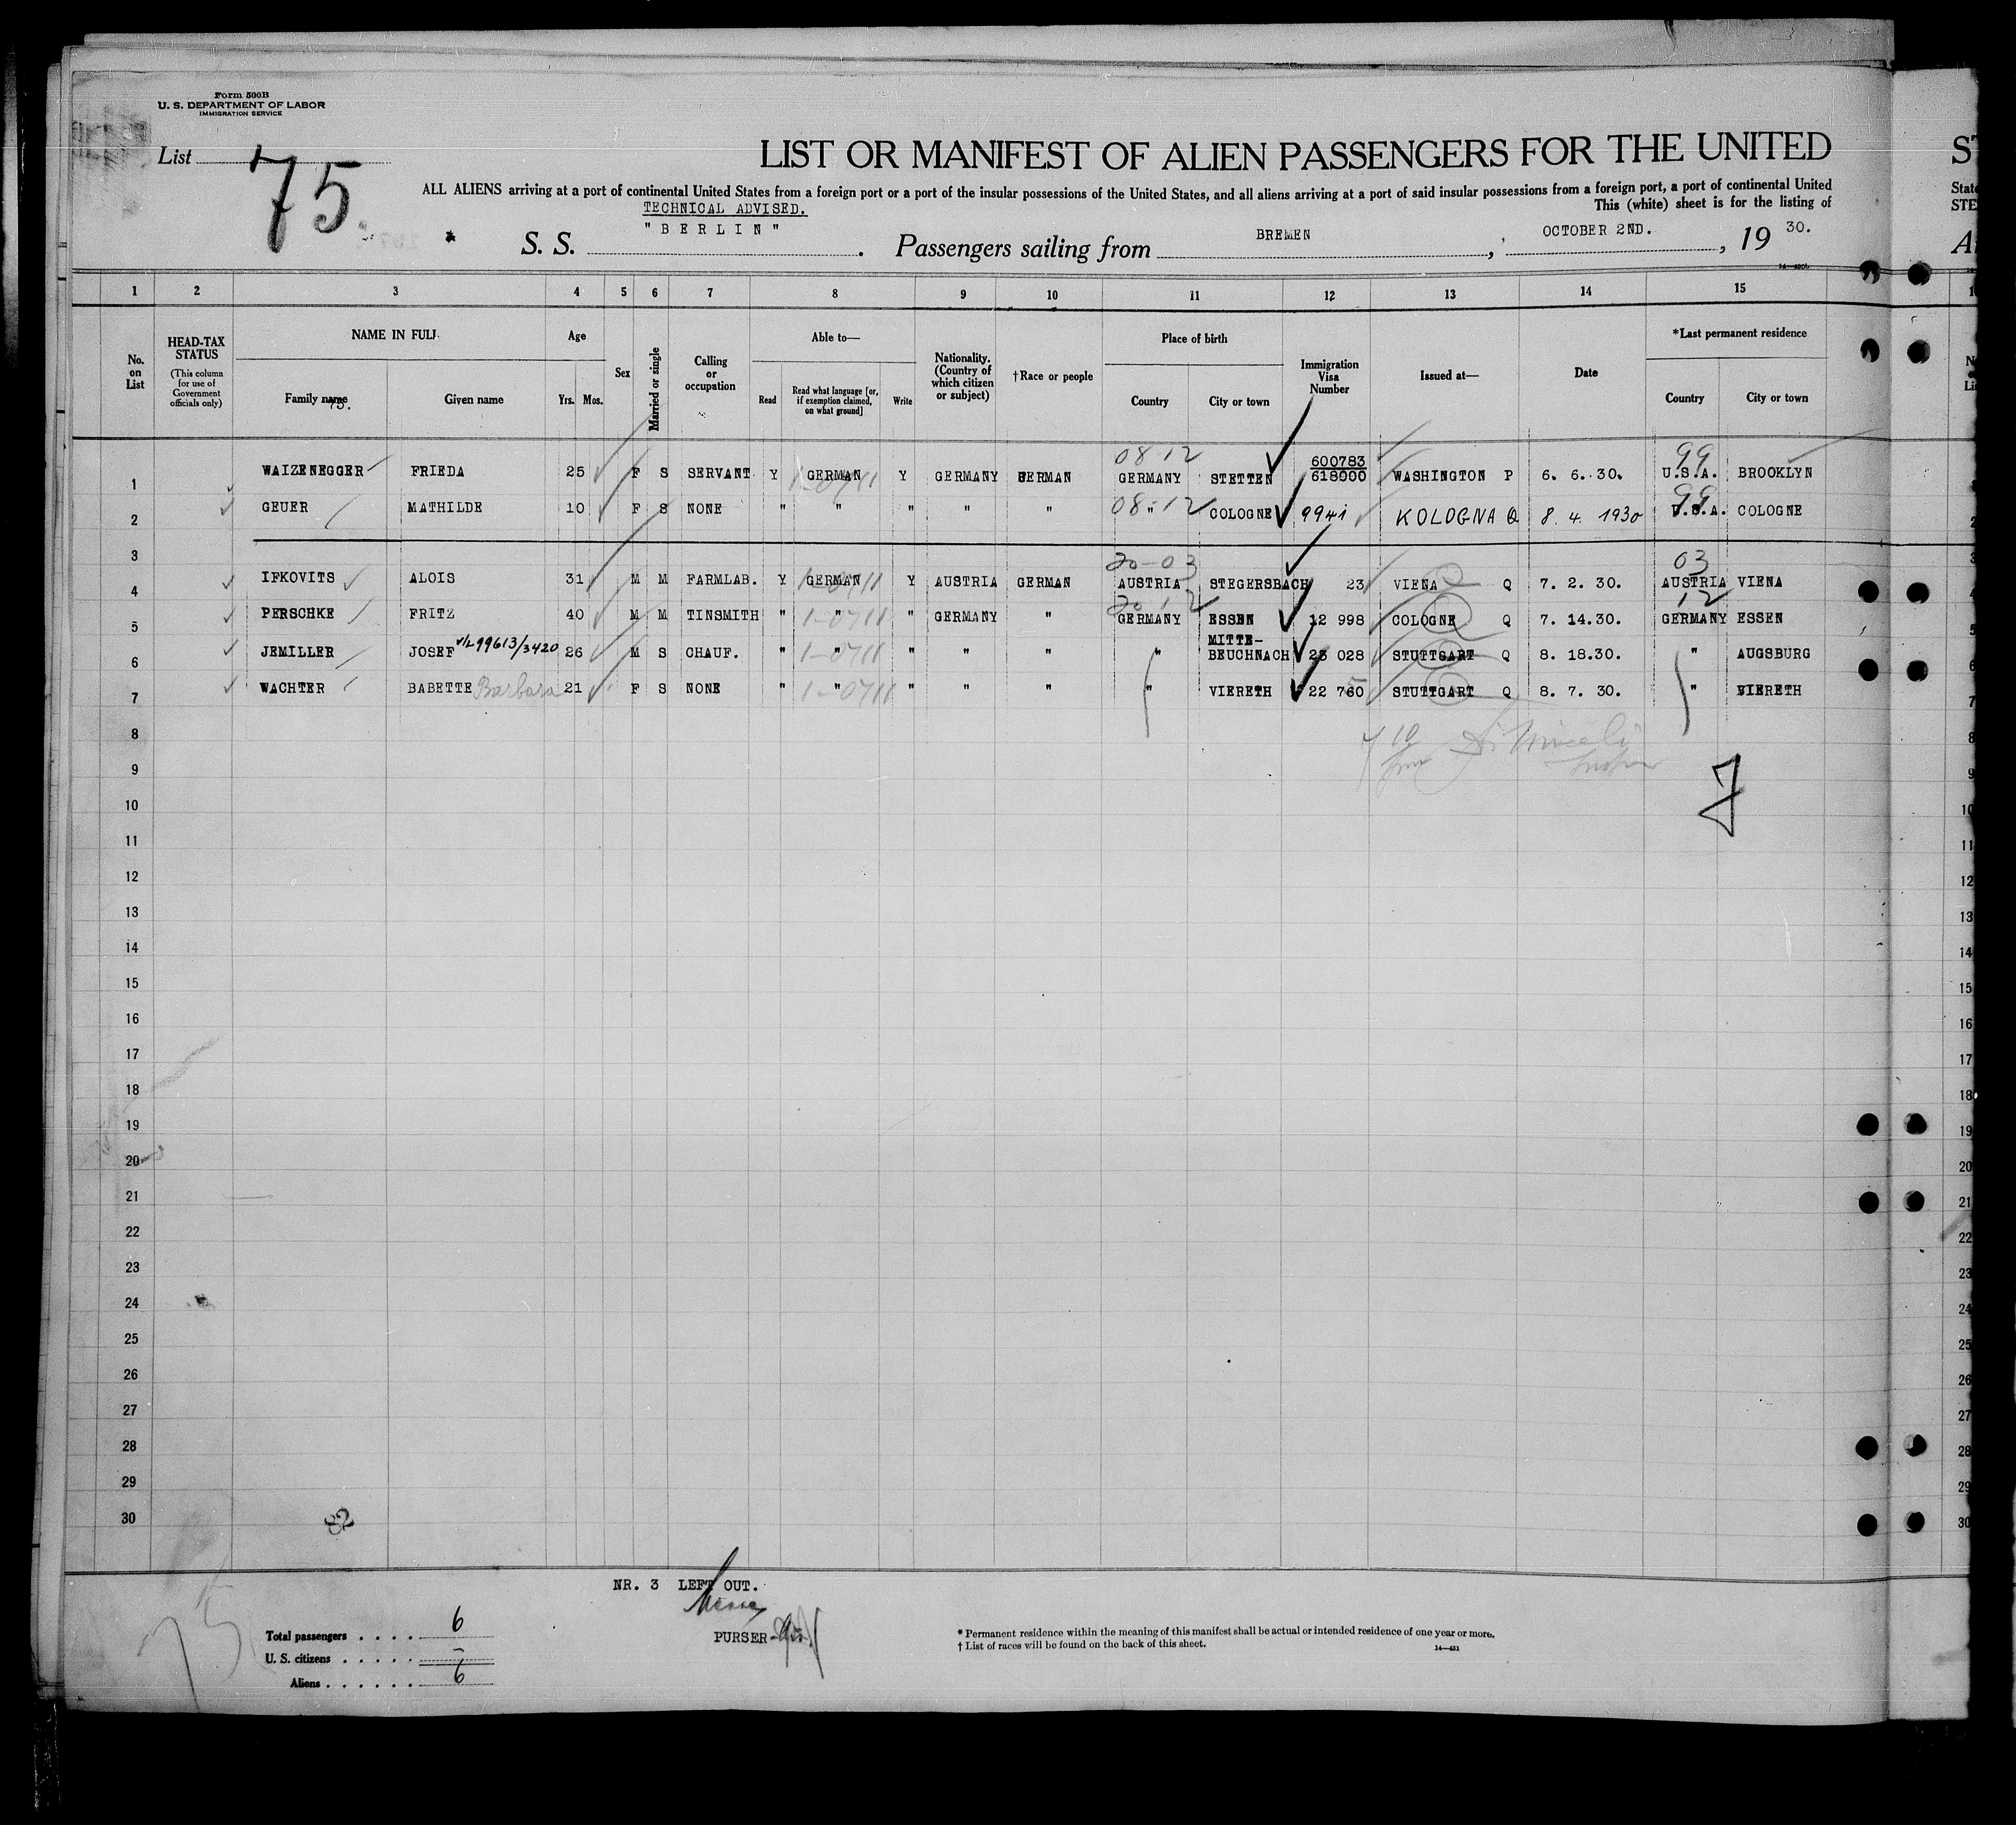 Form 500B
U. S. DEPARTMENT OF LABOR
IMMIGRATION SERVICE
List 75
LIST OR MANIFEST OF ALIEN PASSENGERS FOR THE UNITED
ALL ALIENS arriving at a port of continental United States from a foreign port or a port of the insular possessions of the United States, and all aliens arriving at a port of said insular possessions from a foreign port, a port of continental United
This (white) sheet is for the listing of
TECHNICAL ADVISED.
S. S. "BERLIN". Passengers sailing from BREMEN, OCTOBER 2ND., 19 30.
1 2 3 4 5 6 7 8 9 10 11 12 13 14 15
No. on List
HEAD-TAX STATUS (This column for use of Government officials only)
NAME IN FULL
Family name
Given name
Age
Yrs. Mos.
Sex
Married or single
Calling or occupation
Able to—
Read
Read what language [or, if exemption claimed, on what ground]
Write
Nationality. (Country of which citizen or subject)
†Race or people
Place of birth
Country
City or town
Immigration Visa Number
Issued at—
Date
*Last permanent residence
Country
City or town
08-12 600783 99
1 WAIZENEGGER FRIEDA 25 F S SERVANT Y GERMAN Y GERMANY GERMAN GERMANY STETTEN 618000 WASHINGTON P 6. 6. 30. U.S.A. BROOKLYN
08-12 99
2 GEUER MATHILDE 10 F S NONE " " " " " " COLOGNE 9941 KOLOGNA Q 8. 4. 1930 U.S.A. COLOGNE
3
20-03 03
4 IFKOVITS ALOIS 31 M M FARMLAB. Y GERMAN Y AUSTRIA GERMAN AUSTRIA STEGERSBACH 23 VIENA Q 7. 2. 30. AUSTRIA VIENA
20 12 12
5 PERSCHKE FRITZ 40 M M TINSMITH " " " GERMANY " GERMANY ESSEN 12 998 COLOGNE Q 7. 14.30. GERMANY ESSEN
MITTE-
6 JEMILLER JOSEF V/L99613/3420 26 M S CHAUF. " " " " " " BEUCHNACH 23 028 STUTTGART Q 8. 18.30. " AUGSBURG
7 WACHTER BABETTE Barbara 21 F S NONE " " " " " " VIERETH 22 760 STUTTGART Q 8. 7. 30. " VIERETH
8
9
10
11
12
13
14
15
16
17
18
19
20
21
22
23
24
25
26
27
28
29
30
82
NR. 3 LEFT OUT.
PURSER
Total passengers 6
U. S. citizens -
Aliens 6
75
* Permanent residence within the meaning of this manifest shall be actual or intended residence of one year or more.
† List of races will be found on the back of this sheet.
14—431